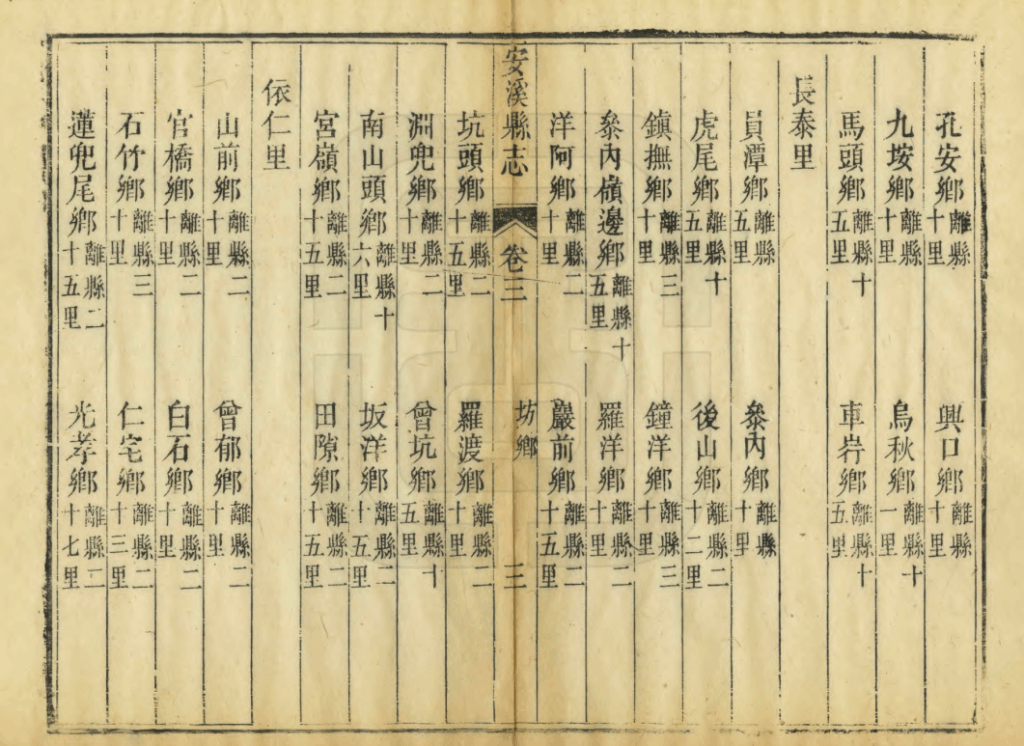 孔安鄉離縣十里 興口鄉離縣十里
九垵鄉離縣十里 烏秋鄉離縣十一里
馬頭鄉離縣十五里 車岺鄉離縣十五里
長泰里
員潭鄉離縣五里 叅內鄉離縣十里
虎尾鄉離縣十五里 後山鄉離縣二十二里
鎮撫鄉離縣三十里 鐘洋鄉離縣三十里
叅內嶺邊鄉離縣十五里 羅洋鄉離縣二十里
洋阿鄉離縣二十里 巖前鄉離縣二十五里
安溪縣志 卷三 坊鄉 三
坑頭鄉離縣二十五里 羅渡鄉離縣二十里
淵兜鄉離縣二十里 曾坑鄉離縣十五里
南山頭鄉離縣十六里 坂洋鄉離縣二十五里
宮嶺鄉離縣二十五里 田隙鄉離縣二十五里
依仁里
山前鄉離縣二十里 曾郁鄉離縣二十里
官橋鄉離縣二十里 白石鄉離縣二十里
石竹鄉離縣三十里 仁宅鄉離縣二十三里
蓮兜尾鄉離縣二十五里 光孝鄉離縣二十七里